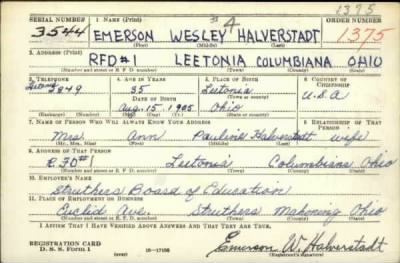 1375
SERIAL NUMBER 1. NAME (Print) 4 ORDER NUMBER
3544 EMERSON WESLEY HALVERSTADT 1375
(First) (Middle) (Last)
2. ADDRESS (Print)
RFD#1 LEETONIA COLUMBIANA OHIO
(Number and street or R. F. D. number) (Town) (County) (State)
3. TELEPHONE 4. AGE IN YEARS 5. PLACE OF BIRTH 6. COUNTRY OF CITIZENSHIP
Leetonia 35 Leetonia
5849 DATE OF BIRTH (Town or county) U.S.A
Aug. 15. 1905 Ohio
(Exchange) (Number) (Mo.) (Day) (Yr.) (State or country)
7. NAME OF PERSON WHO WILL ALWAYS KNOW YOUR ADDRESS 8. RELATIONSHIP OF THAT PERSON
Mrs Ann Pauline Halverstadt wife
(Mr., Mrs., Miss) (First) (Middle) (Last)
9. ADDRESS OF THAT PERSON
R.F.D#1 Leetonia Columbiana Ohio
(Number and street or R. F. D. number) (Town) (County) (State)
10. EMPLOYER'S NAME
Struthers Board of Education
11. PLACE OF EMPLOYMENT OR BUSINESS
Euclid Ave. Struthers Mahoning Ohio
(Number and street or R. F. D. number) (Town) (County) (State)
I AFFIRM THAT I HAVE VERIFIED ABOVE ANSWERS AND THAT THEY ARE TRUE.
REGISTRATION CARD
D. S. S. FORM 1 16-17105 Emerson W. Halverstadt
(Registrant's signature)